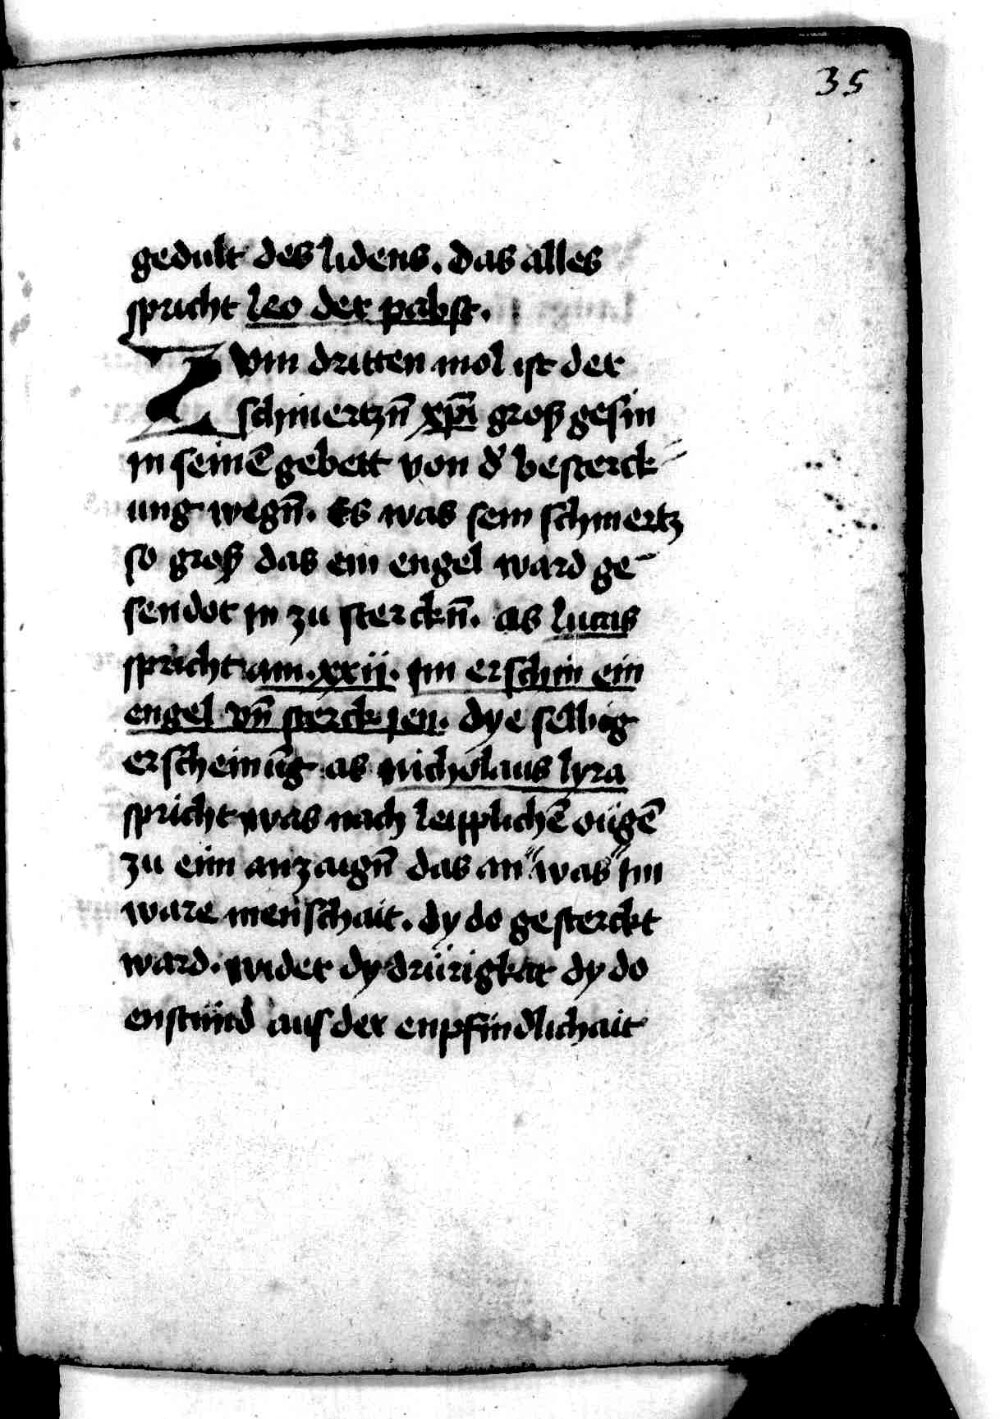 35
gedult des lidens. das alles
spricht leo der pabst.
Zvm dritten mol ist der
schmertzn̄ xp̄i groß gesin
jn seinē gebett von d' besterck-
ung wegn̄. Es was sein schmertz
so groß das ein engel ward ge-
sendot jn zu sterckn̄. as lucas
spricht am .xxij. jm erschin ein
engel vn̄ sterck jen. dye selbig
erscheinūg as nicholaus lyra
spricht was nach leipplichē ougē
zu eim anzaign̄ das an was jm
ware menschait. dy do gesterckt
ward. wider dy drürigkat dy do
enstünd aus der enpfindlichait